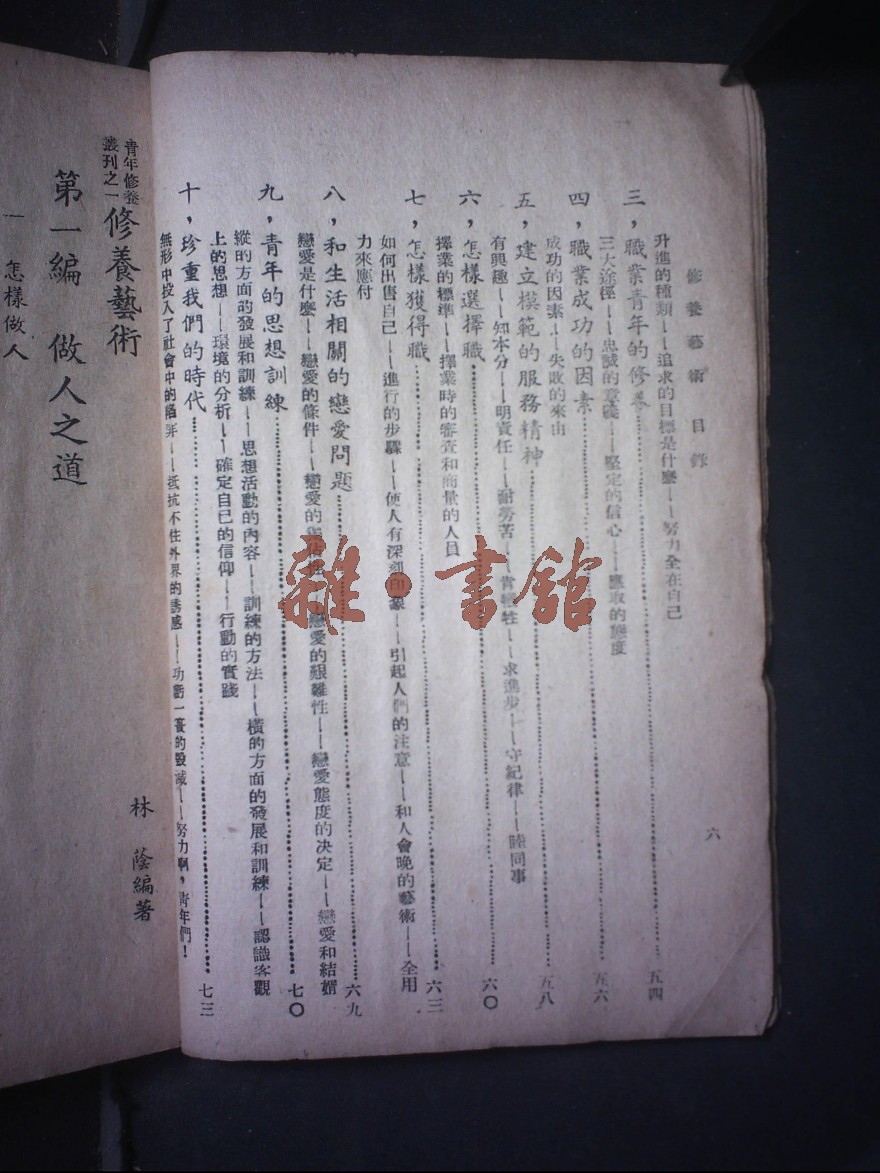 修養藝術 目錄
六
升進的種類——追求的目標是什麼——努力全在自己
三，職業青年的修養……五四
三大途徑——忠誠的意識——堅定的信心——應取的態度
四，職業成功的因素……五六
成功的因素——失敗的來由
五，建立模範的服務精神……五八
有興趣——知本分——明責任——耐勞苦——肯犧牲——求進步——守紀律——睦同事
六，怎樣選擇職……六〇
擇業的標準——擇業時的審查和商量的人員
七，怎樣獲得職……六三
如何出售自己——進行的步驟——使人有深刻印象——引起人們的注意——和人會晚的藝術——全用
力來應付
八，和生活相關的戀愛問題……六九
戀愛是什麼——戀愛的條件——戀愛的與佔性——戀愛的艱難性——戀愛態度的決定——戀愛和結婚
九，青年的思想訓練……七〇
縱的方面的發展和訓練——思想活動的內容——訓練的方法——橫的方面的發展和訓練——認識客觀
上的思想——環境的分析——確定自己的信仰——行動的實踐
十，珍重我們的時代……七三
無形中投入了社會中的陷阱——抵抗不住外界的誘惑——功虧一簣的毀滅——努力啊，青年們！
雜·書館
青年修養
叢刊之一
修養藝術
林蔭編著
第一編 做人之道
一 怎樣做人